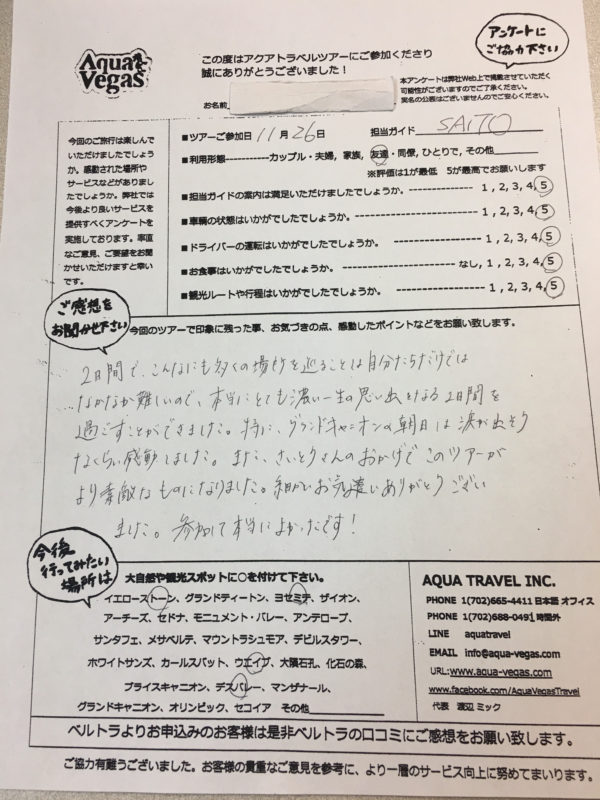 Aqua
Vegas
この度はアクアトラベルツアーにご参加くださり
誠にありがとうございました！
アンケートに
ご協力下さい
お名前
本アンケートは弊社Web上で掲載させていただく
可能性がございますのでご了承ください。
実名の公表はございませんのでご安心ください。
今回のご旅行は楽しんで
いただけましたでしょう
か。感動された場所や
サービスなどがありまし
たでしょうか。弊社では
今後より良いサービスを
提供すべくアンケートを
実施しております。率直
なご意見、ご要望をお聞
かせいただけますと幸い
です。
■ツアーご参加日 11月26日 担当ガイド SAITO
■利用形態-----------カップル・夫婦, 家族, 友達・同僚, ひとりで, その他
※評価は1が最低 5が最高でお願いします
■担当ガイドの案内は満足いただけましたでしょうか。---------------- 1 , 2, 3, 4, 5
■車輌の状態はいかがでしたでしょうか。-------------------------- 1 , 2, 3, 4, 5
■ドライバーの運転はいかがでしたでしょうか。-------------------- 1 , 2, 3, 4, 5
■お食事はいかがでしたでしょうか。-------------------- なし, 1 , 2, 3, 4, 5
■観光ルートや行程はいかがでしたでしょうか。-------------------- 1 , 2, 3, 4, 5
ご感想を
お聞かせ下さい
今回のツアーで印象に残った事、お気づきの点、感動したポイントなどをお願い致します。
2日間で、こんなにも多くの場所を巡ることは自分たちだけでは
なかなか難しいので、本当にとても濃い一生の思い出となる2日間を
過ごすことができました。特に、グランドキャニオンの朝日は涙が出そう
なくらい感動しました。また、さいとうさんのおかげでこのツアーが
より素敵なものになりました。細かいお気遣いありがとうござい
ました。参加して本当によかったです！
今後
行ってみたい
場所は
大自然や観光スポットに○を付けて下さい。
イエローストーン、グランドティートン、ヨセミテ、ザイオン、
アーチーズ、セドナ、モニュメント・バレー、アンテロープ、
サンタフェ、メサベルデ、マウントラシュモア、デビルスタワー、
ホワイトサンズ、カールスバット、ウエイブ、大隕石孔、化石の森、
ブライスキャニオン、デスバレー、マンザナール、
グランドキャニオン、オリンピック、セコイア その他
AQUA TRAVEL INC.
PHONE 1(702)665-4411 日本語 オフィス
PHONE 1(702)688-0491 時間外
LINE aquatravel
EMAIL info@aqua-vegas.com
URL:www.aqua-vegas.com
www.facebook.com/AquaVegasTravel
代表 渡辺 ミック
ベルトラよりお申込みのお客様は是非ベルトラの口コミにご感想をお願い致します。
ご協力有難うございました。お客様の貴重なご意見を参考に、より一層のサービス向上に努めてまいります。